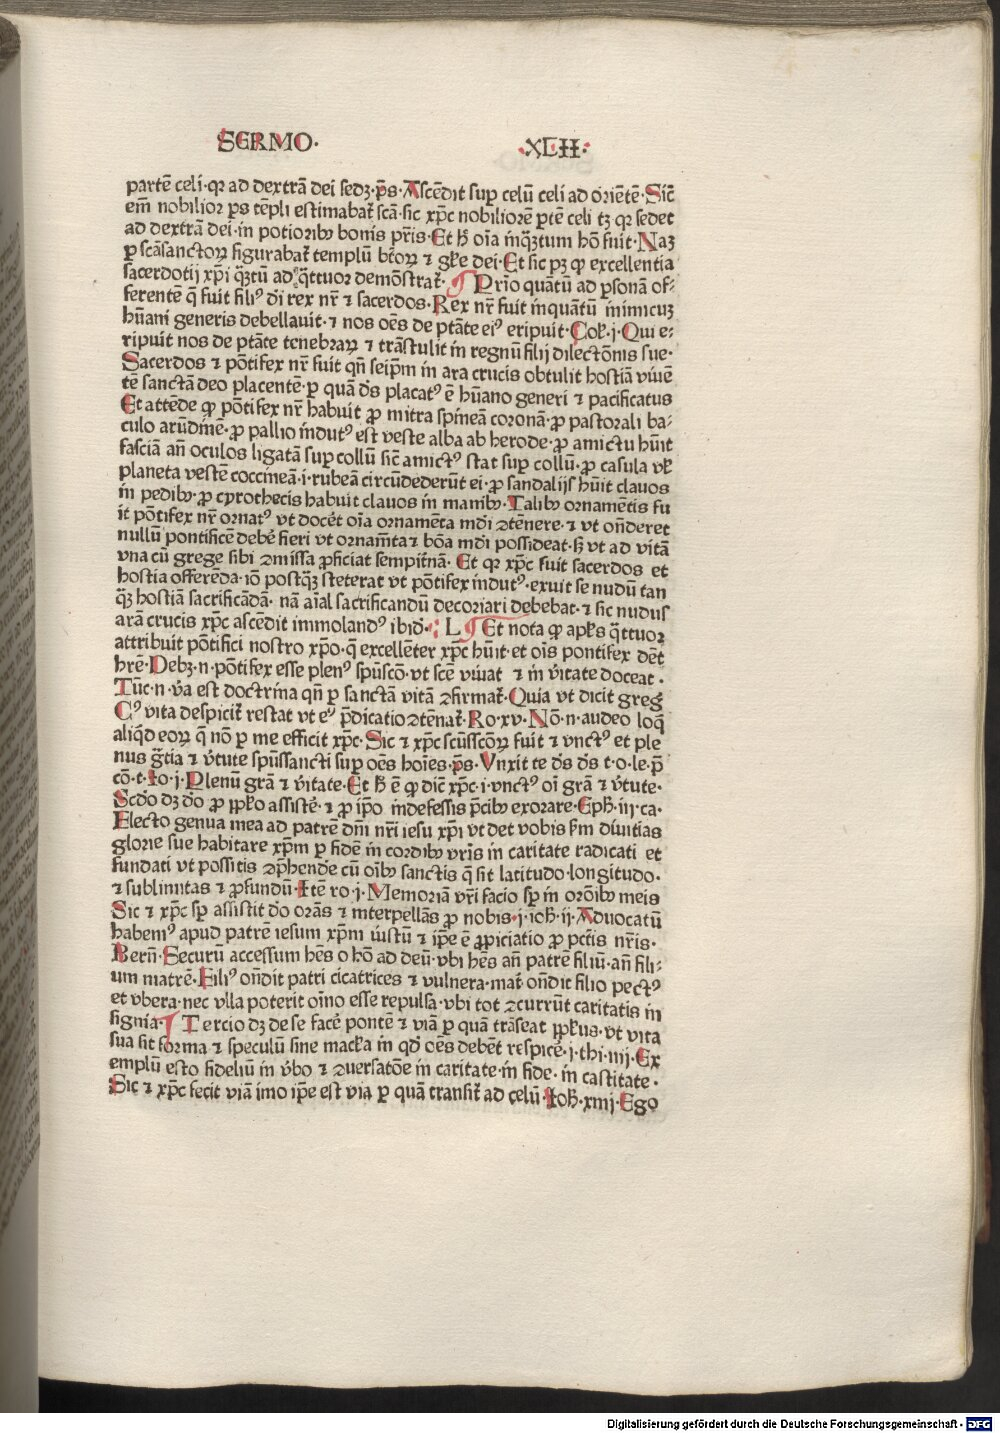 SERMO· ·XLII·
partē celi·qꝛ ad dextrā dei sedꝫ·p̄s·Ascēdit sup̱ celū celi ad oriētē·Sic̄
em̄ nobilior p̱s tēpli estimabat᷑ scā·sic xp̄c nobiliorē p̱tē celi tꝫ qꝛ sedet
ad dextrā dei·in potiorib᷒ bonis pr̄is·Et ħ oīa inq̄ꝫtum hō fuit·Naꝫ
p̱ scāsanctoꝝ figurabat᷑ templū bt̄oꝝ ⁊ gl̄ie dei·Et sic pꝫ ꝙ excellentia
sacerdotij xp̄i q̄ꝫtū ad q̄ttuor demōstrat᷑· ¶ Pr̄io quātū ad p̱sonā of⸗
ferentē q̄ fuit fili᷒ di rex nr̄ ⁊ sacerdos·Rex nr̄ fuit inquātū inimicuꝫ
hūani generis debellauit·⁊ nos oēs de ptāte ei᷒ eripuit·Col̄·j·Qui e⸗
ripuit nos de ptāte tenebraꝝ ⁊ trāstulit in regnū filij dilectōnis sue·
Sacerdos ⁊ pōtifex nr̄ fuit qn̄ seip̄m in ara crucis obtulit hostiā viuē
tē sanctā deo placentē·p̱ quā ds̄ placat᷒ ē hūano generi ⁊ pacificatus
Et attēde ꝙ pōtifex nr̄ habuit ꝓ mitra spineā coronā·ꝓ pastorali ba⸗
culo arūdinē·ꝓ pallio indut᷒ est veste alba ab herode·ꝓ amictu hūit
fasciā an̄ oculos ligatā sup̱ collū sic̄ amict᷒ stat sup̱ collū·ꝓ casula vl̄
planeta vestē coccineā·i·rubeā circūdederūt ei·ꝓ sandalijs hūit clauos
in pedib᷒·ꝓ cyrothecis habuit clauos in manib᷒·Talib᷒ ornamētis fu
it pōtifex nr̄ ornat᷒ vt docēt oīa ornamēta mdi ꝯtēnere·⁊ vt on̄deret
nullū pontificē debē fieri vt ornam̄ta ⁊ bōa mdi possideat·sꝫ vt ad vitā
vna cū grege sibi ꝯmissa ꝓficiat sempit̄nā· Et qꝛ xp̄c fuit sacerdos et
hostia offerēda·iō postq̄ꝫ steterat vt pōtifex indut᷒·exuit se nudū tan
q̄ꝫ hostiā sacrificādā· nā aīal sacrificandū decoriari debebat·⁊ sic nudus
arā crucis xp̄c ascēdit immoland᷒ ibid̄·: L ¶ Et nota ꝙ ap̄ls q̄ttuoꝛ
attribuit pōtifici nostro xp̄o·q̄ excellēter xp̄c hūit·et oīs pontifex dēt
hr̄e·Debꝫ·n·pōtifex esse plen᷒ spūscō·vt scē viuat ⁊ in v̄itate doceat·
Tūc·n·v̄a est doctrina qn̄ p̱ sanctā vitā ꝯfirmat᷑·Quia vt dicit greḡ
C᷒ vita despicit᷑ restat vt e᷒ p̄dicatio ꝯtēnat᷑·Ro·xv·Nō·n·audeo loq̄
aliq̄d eoꝝ q̄ nō p̱ me efficit xp̄c·Sic ⁊ xp̄c scūsscōꝝ fuit ⁊ vnct᷒ et ple
nus gr̄tia ⁊ v̄tute spūssancti sup̱ oēs hoīes·p̄s·Vnxit te ds̄ ds̄ t·o·le·p̄
cō·t·Io·j·Plenū grā ⁊ v̄itate·Et ħ ē ꝙ dic̄ xp̄c·i·vnct᷒ oī grā ⁊ v̄tute·
Scd̄o dꝫ do̅ ꝓ pp̄lo assistē·⁊ ꝓ ip̄o indefessis p̄cib᷒ exorare·Eph̄·iij·ca·
Flecto genua mea ad patrē dn̄i nr̄i iesu xp̄i vt det vobis sm̄ diuitias
glorie sue habitare xp̄m p̱ fidē in cordib᷒ vr̄is in caritate radicati et
fundati vt possitis ꝯp̄hendē cū oīb᷒ sanctis q̄ sit latitudo·longitudo·
⁊ sublimitas ⁊ ꝓfundū·Itē ro·j·Memoriā vr̄i facio sp̱ in orōib᷒ meis
Sic ⁊ xp̄c sp̱ assistit do̅ orās ⁊ interpellās ꝓ nobis·j·ioh̄·ij·Aduocatū
habem᷒ apud patrē iesum xp̄m iustū ⁊ ip̄e ē ꝓpiciatio ꝓ pctīs nr̄is·
Bern̄·Securū accessum hēs o hō ad deū·vbi hēs an̄ patrē filiū·an̄ fili⸗
um matrē·Fili᷒ on̄dit patri cicatrices ⁊ vulnera·mat᷑ on̄dit filio pect᷒
et vbera·nec vlla poterit oīno esse repulsa·vbi tot ꝯcurrūt caritatis in
signia·¶ Tercio dꝫ de se facē pontē ⁊ viā p̱ quā trāseat pp̄lus·vt vita
sua sit forma ⁊ speculū sine macl̄a in qd̄ oēs debēt respicē·j·thi·iiij·Ex
emplū esto fideliū in v̄bo ⁊ ꝯuersatōe in caritate·in fide·in castitate·
Sic ⁊ xp̄c fecit viā imo ip̄e est via p̱ quā transit᷑ ad celū·Ioh̄·xiiij·Ego
Digitalisierung gefördert durch die Deutsche Forschungsgemeinschaft - DFG